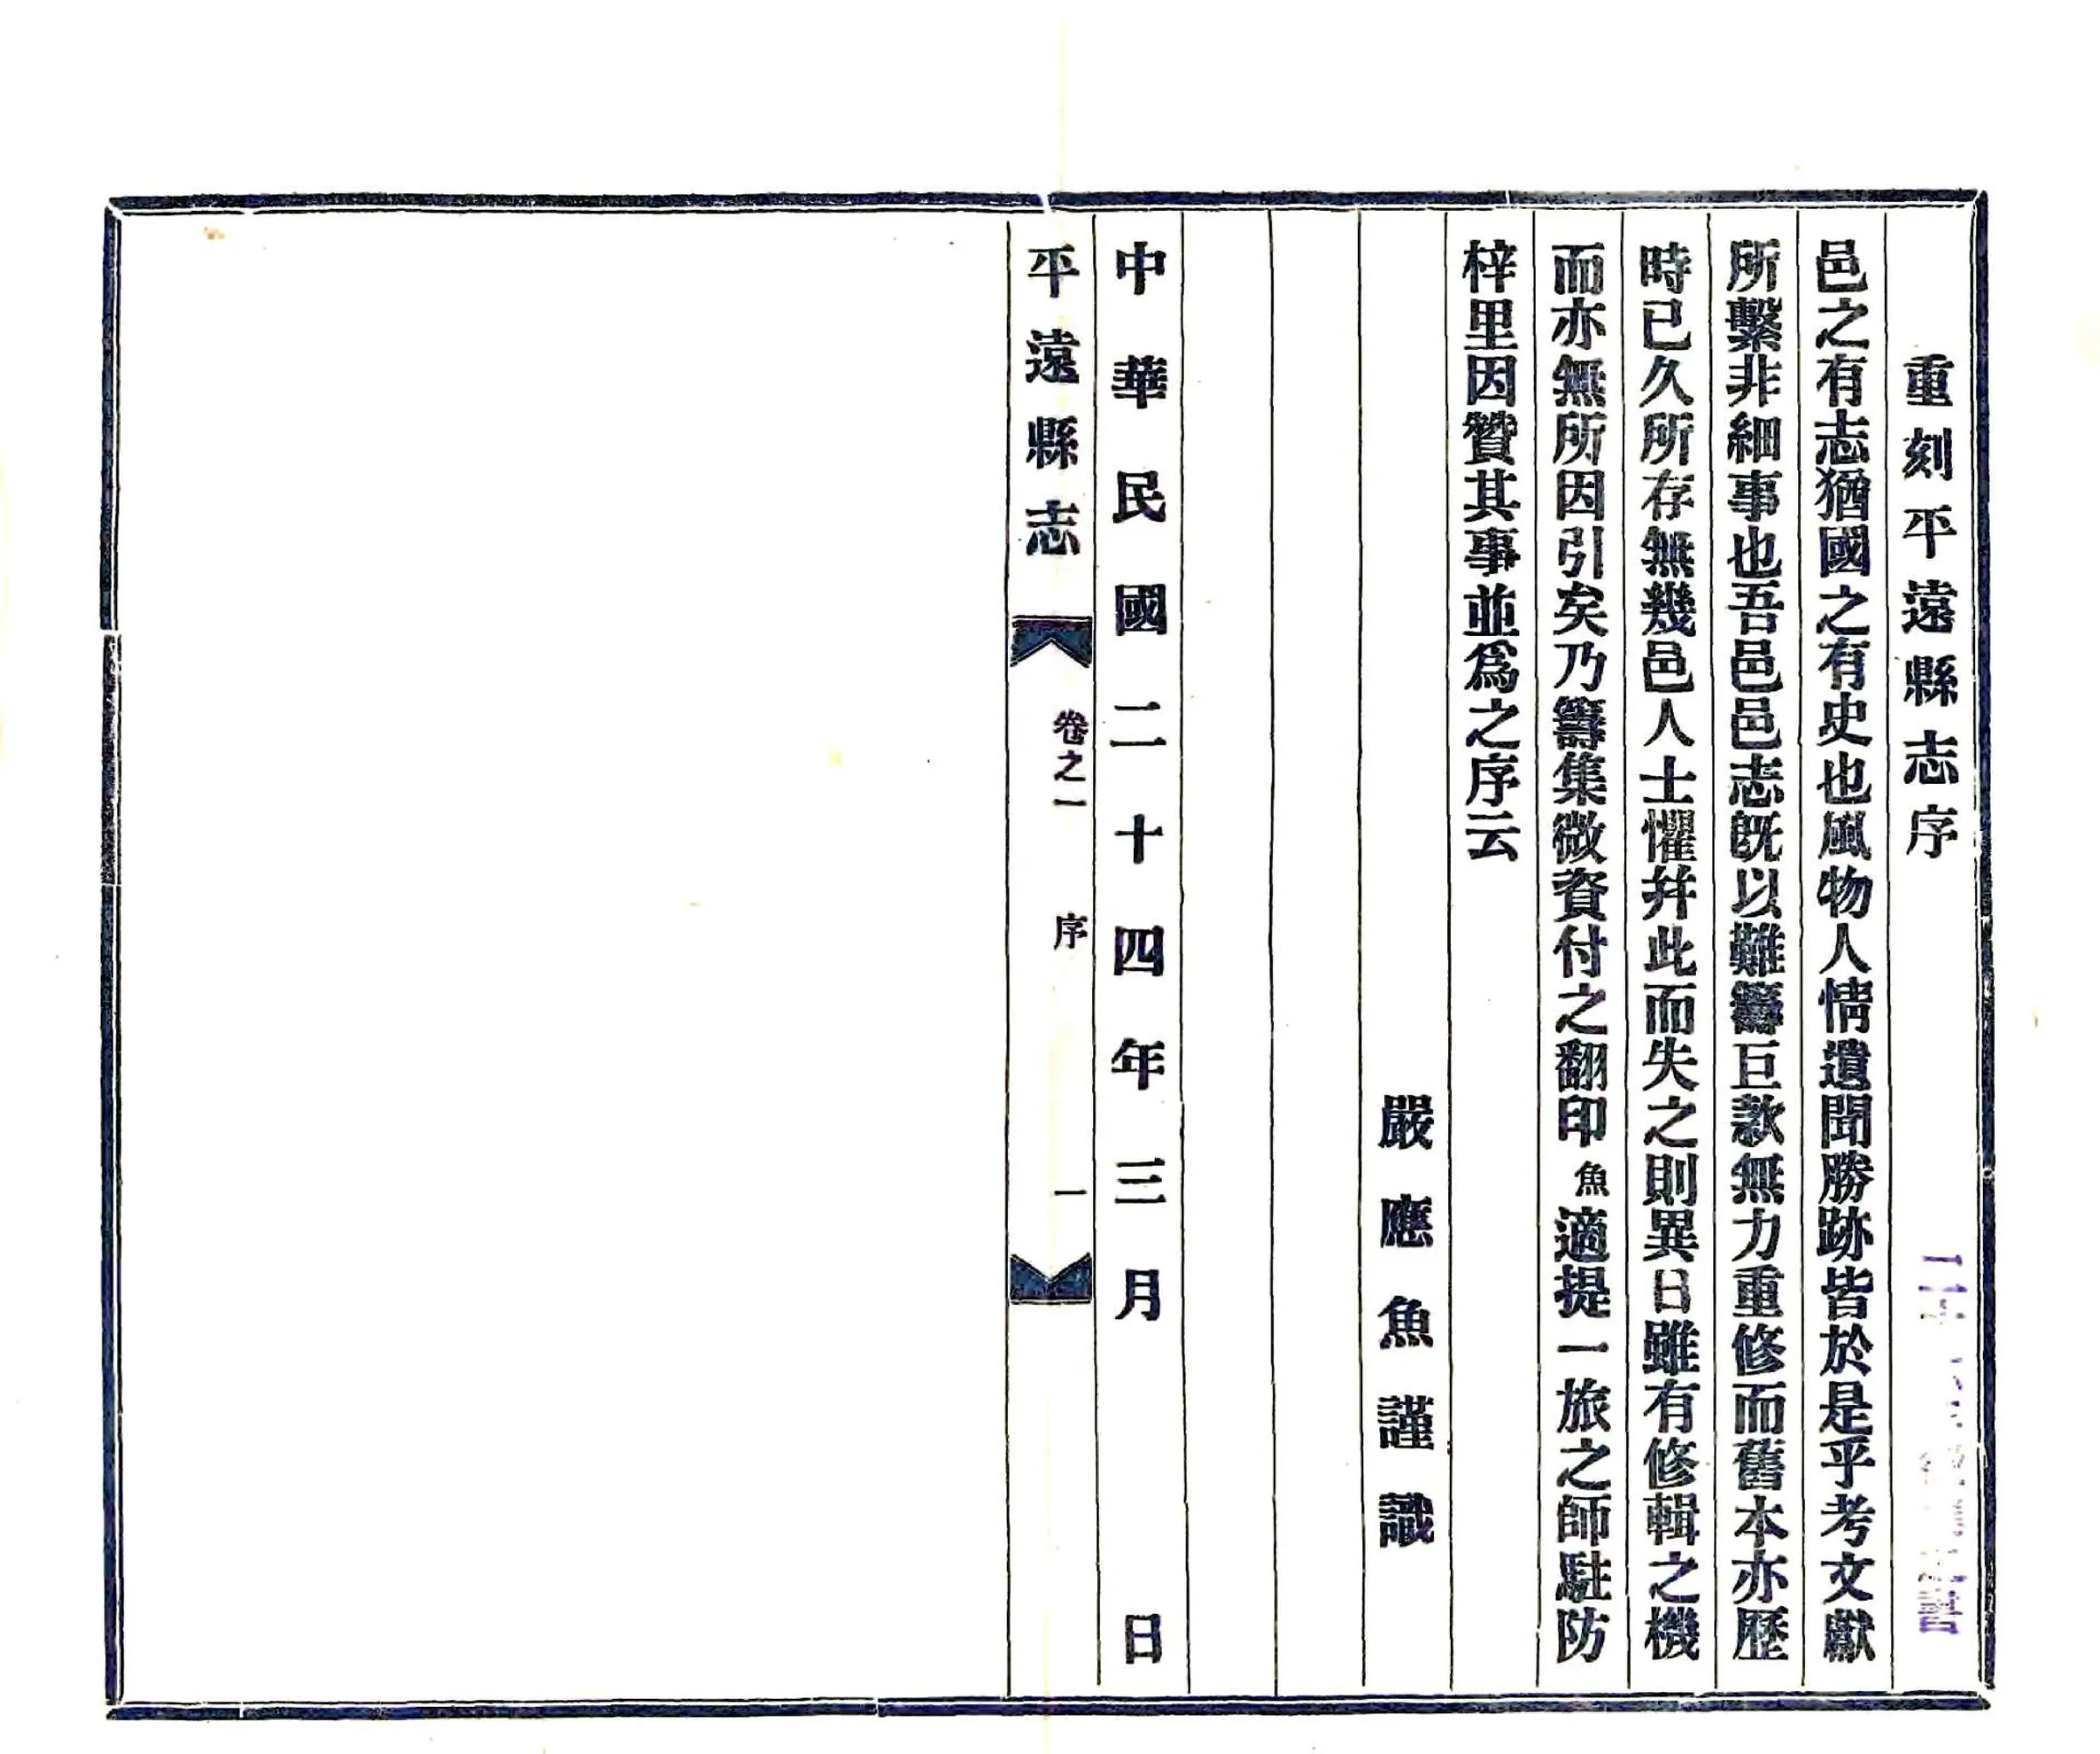 重刻平遠縣志序
邑之有志猶國之有史也風物人情遺聞勝跡皆於是乎考文獻
所繫非細事也吾邑邑志既以難籌巨款無力重修而舊本亦歷
時已久所存無幾邑人士懼幷此而失之則異日雖有修輯之機
而亦無所因引矣乃籌集微資付之翻印魚適提一旅之師駐防
梓里因贊其事並爲之序云
嚴應魚謹識
中華民國二十四年三月 日
平遠縣志 卷之一 序 一